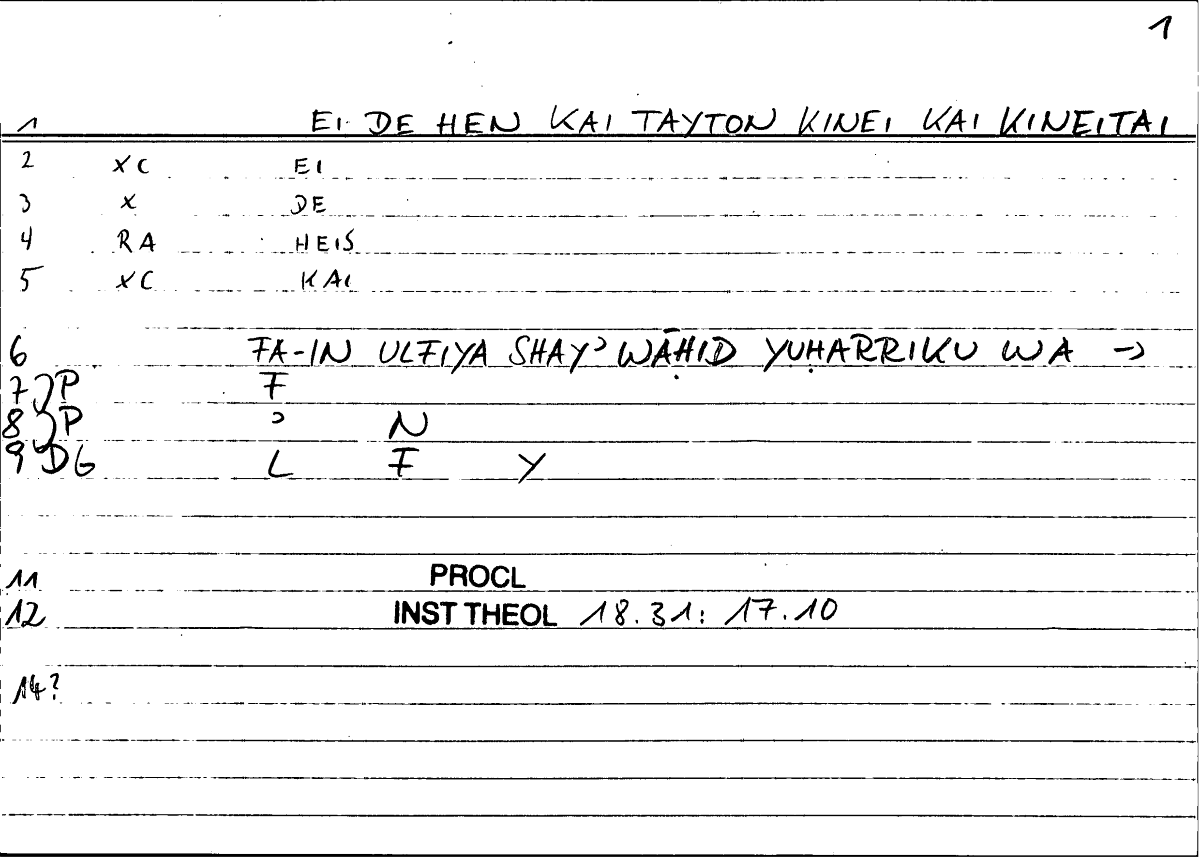 1
1 EI DE HEN KAI TAYTON KINEI KAI KINEITAI
2 XC EI
3 X DE
4 RA HEIS
5 XC KAI
6 FA-IN ULFIYA SHAYʾ WĀḤID YUḤARRIKU WA →
7 JP F
8 JP ʾ N
9 DG L F Y
11 PROCL
12 INST THEOL 18.31: 17.10
14?